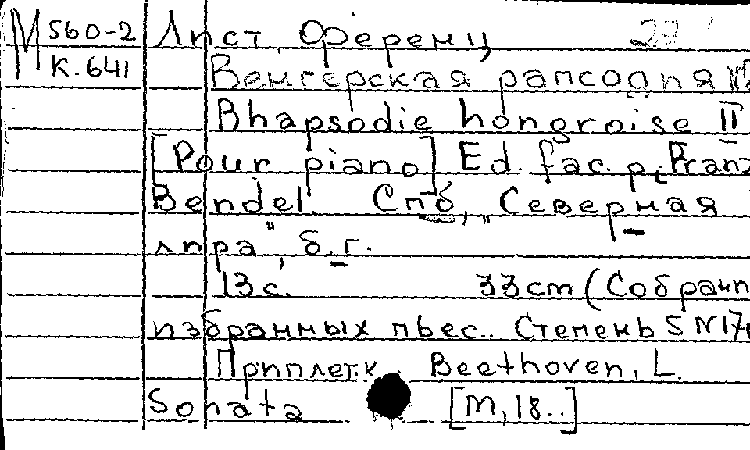 М 560-2 Лист, Ференц 22
К.641 Венгерская рапсодия №
Rhapsodie hongroise II
[Pour piano] Ed. fac. p. Franz
Bendel. Спб, "Северная
лира", б.г.
13с. 33cm (Собрание
избранных пьес.. Степень 5 N17
Приплет.к Beethoven, L.
Sonata [М, 18..]